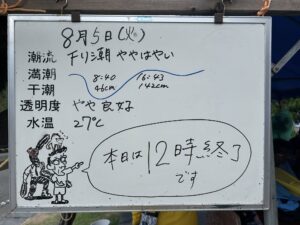 8月5日(火)
潮流 下り潮 ややはやい
満潮 8:40 16:43
干潮 46cm 142cm
透明度 やや良好
水温 27℃
本日は12時終了
です